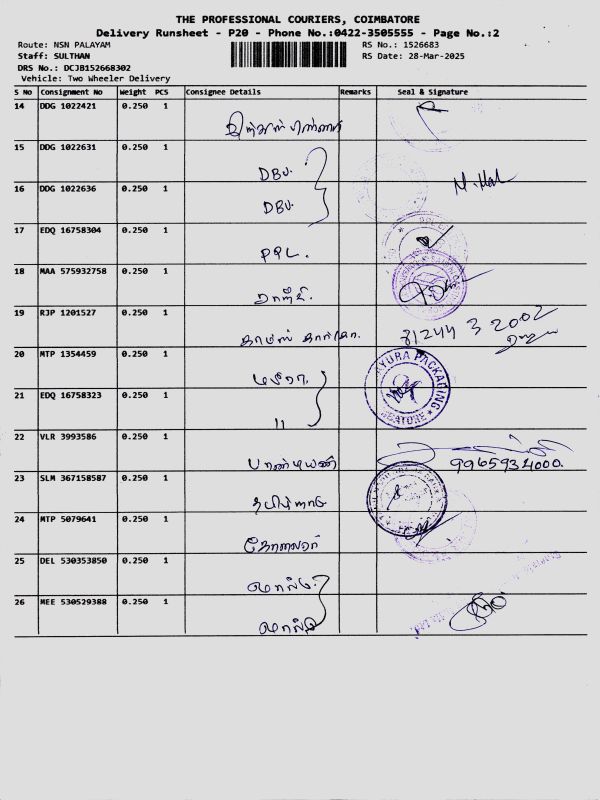 THE PROFESSIONAL COURIERS, COIMBATORE
Delivery Runsheet - P20 - Phone No.:0422-3505555 - Page No.:2
Route: NSN PALAYAM RS No.: 1526683
Staff: SULTHAN RS Date: 28-Mar-2025
DRS No.: DCJB152668302
Vehicle: Two Wheeler Delivery
S No Consignment No Weight PCS Consignee Details Remarks Seal & Signature
14 DDG 1022421 0.250 1
15 DDG 1022631 0.250 1
DBV.
16 DDG 1022636 0.250 1
DBV.
17 EDQ 16758304 0.250 1
PPL.
18 MAA 575932758 0.250 1
19 RJP 1201527 0.250 1
81244 3 2002
20 MTP 1354459 0.250 1
AYURA PACKAGING
21 EDQ 16758323 0.250 1
"
22 VLR 3993586 0.250 1
பாண்டியன்
9965934000.
23 SLM 367158587 0.250 1
தமிழ்நாடு
24 MTP 5079641 0.250 1
25 DEL 530353850 0.250 1
26 MEE 530529388 0.250 1